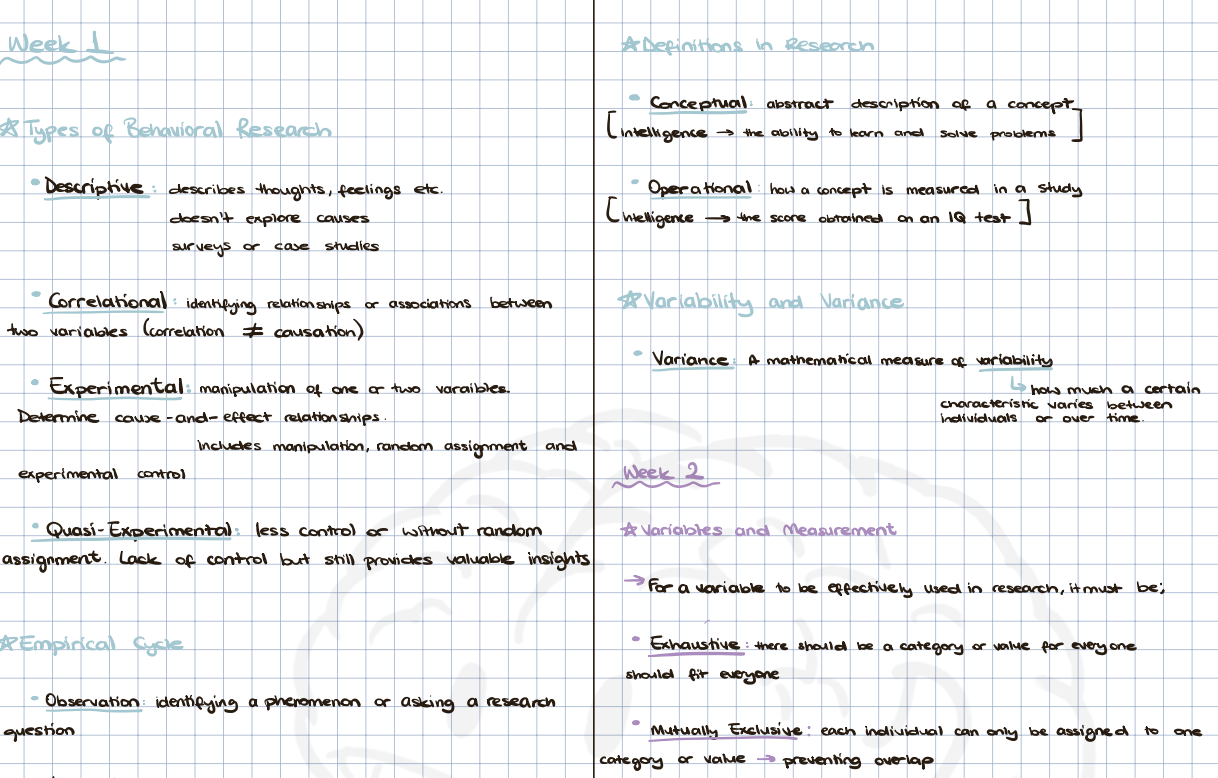 Week 1
☆Types of Behavioral Research
• Descriptive: describes thoughts, feelings etc.
doesn't explore causes
surveys or case studies
• Correlational: identifying relationships or associations between
two variables (correlation ≠ causation)
• Experimental: manipulation of one or two varaibles.
Determine cause-and-effect relationships.
Includes manipulation, random assignment and
experimental control
• Quasi-Experimental: less control or without random
assignment. Lack of control but still provides valuable insights
☆Empirical Cycle
• Observation: identifying a phenomenon or asking a research
question
☆Definitions in Research
• Conceptual: abstract description of a concept
[intelligence → the ability to learn and solve problems]
• Operational: how a concept is measured in a study
[intelligence → the score obtained on an IQ test]
☆Variability and Variance
• Variance: A mathematical measure of variability
↳ how much a certain
characteristic varies between
individuals or over time.
Week 2
☆Variables and Measurement
→ For a variable to be effectively used in research, it must be;
• Exhaustive: there should be a category or value for everyone
should fit everyone
• Mutually Exclusive: each individual can only be assigned to one
category or value → preventing overlap